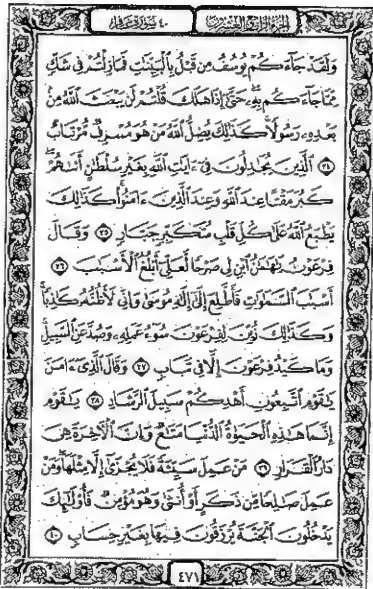 الجزء الرابع والعشرون ٤٠ سورة غافر
وَلَقَدْ جَآءَكُمْ يُوسُفُ مِن قَبْلُ بِٱلْبَيِّنَٰتِ فَمَا زِلْتُمْ فِى شَكٍّ
مِّمَّا جَآءَكُم بِهِۦ حَتَّىٰٓ إِذَا هَلَكَ قُلْتُمْ لَن يَبْعَثَ ٱللَّهُ مِنۢ
بَعْدِهِۦ رَسُولًا كَذَٰلِكَ يُضِلُّ ٱللَّهُ مَنْ هُوَ مُسْرِفٌ مُّرْتَابٌ
٣٤ ٱلَّذِينَ يُجَٰدِلُونَ فِىٓ ءَايَٰتِ ٱللَّهِ بِغَيْرِ سُلْطَٰنٍ أَتَىٰهُمْ
كَبُرَ مَقْتًا عِندَ ٱللَّهِ وَعِندَ ٱلَّذِينَ ءَامَنُوا۟ كَذَٰلِكَ
يَطْبَعُ ٱللَّهُ عَلَىٰ كُلِّ قَلْبِ مُتَكَبِّرٍ جَبَّارٍ ٣٥ وَقَالَ
فِرْعَوْنُ يَٰهَٰمَٰنُ ٱبْنِ لِى صَرْحًا لَّعَلِّىٓ أَبْلُغُ ٱلْأَسْبَٰبَ ٣٦
أَسْبَٰبَ ٱلسَّمَٰوَٰتِ فَأَطَّلِعَ إِلَىٰٓ إِلَٰهِ مُوسَىٰ وَإِنِّى لَأَظُنُّهُۥ كَٰذِبًا
وَكَذَٰلِكَ زُيِّنَ لِفِرْعَوْنَ سُوٓءُ عَمَلِهِۦ وَصُدَّ عَنِ ٱلسَّبِيلِ
وَمَا كَيْدُ فِرْعَوْنَ إِلَّا فِى تَبَابٍ ٣٧ وَقَالَ ٱلَّذِىٓ ءَامَنَ
يَٰقَوْمِ ٱتَّبِعُونِ أَهْدِكُمْ سَبِيلَ ٱلرَّشَادِ ٣٨ يَٰقَوْمِ
إِنَّمَا هَٰذِهِ ٱلْحَيَوٰةُ ٱلدُّنْيَا مَتَٰعٌ وَإِنَّ ٱلْءَاخِرَةَ هِىَ
دَارُ ٱلْقَرَارِ ٣٩ مَنْ عَمِلَ سَيِّئَةً فَلَا يُجْزَىٰٓ إِلَّا مِثْلَهَا وَمَنْ
عَمِلَ صَٰلِحًا مِّن ذَكَرٍ أَوْ أُنثَىٰ وَهُوَ مُؤْمِنٌ فَأُو۟لَٰٓئِكَ
يَدْخُلُونَ ٱلْجَنَّةَ يُرْزَقُونَ فِيهَا بِغَيْرِ حِسَابٍ ٤٠
٤٧١